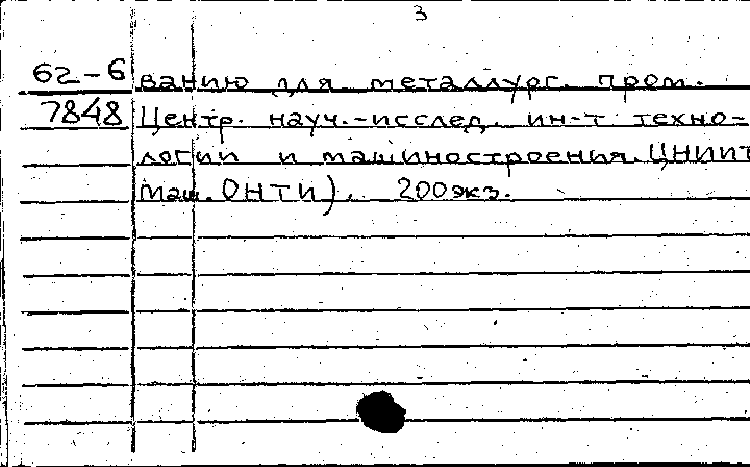 3
62-6 ванию для металлург. пром.
7848 Центр. науч.-исслед. ин-т техно-
логии и машиностроения. ЦНИИТ
маш. ОНТИ). 200 экз.